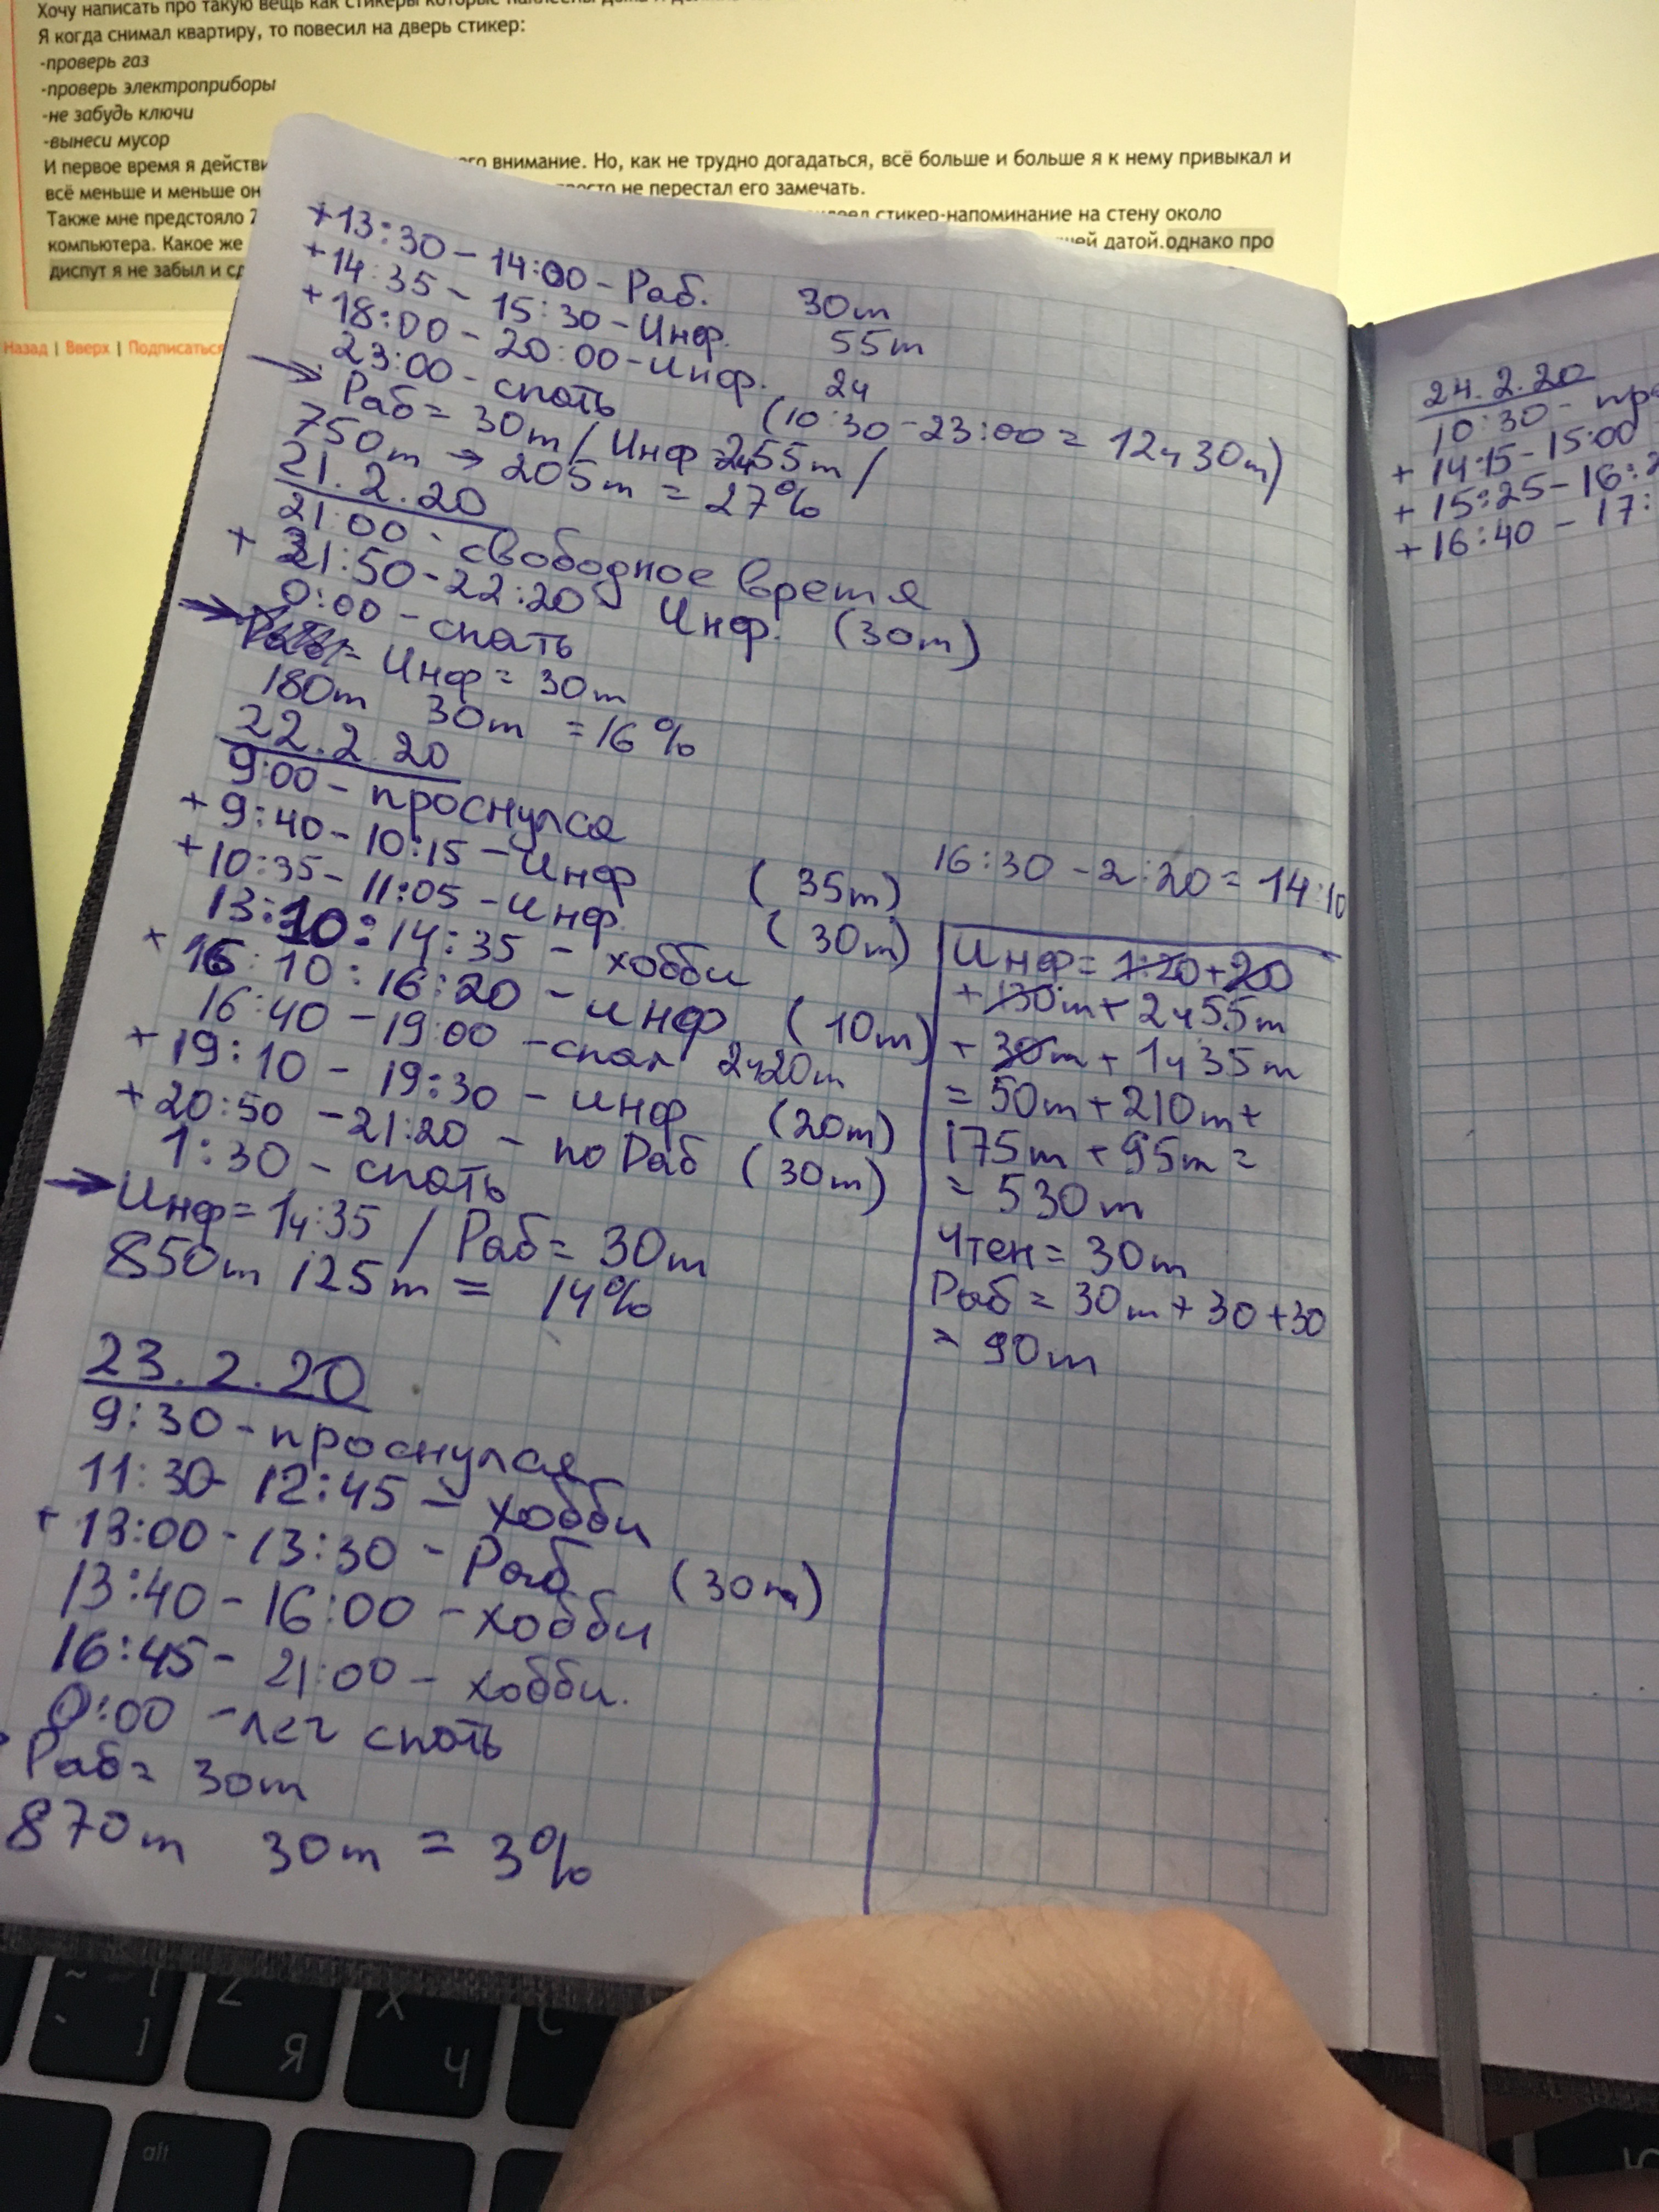 Хочу написать про такую вещь как стикеры которые наклеены дома и
Я когда снимал квартиру, то повесил на дверь стикер:
-проверь газ
-проверь электроприборы
-не забудь ключи
-вынеси мусор
И первое время я действи внимание. Но, как не трудно догадаться, всё больше и больше я к нему привыкал и
всё меньше и меньше он не перестал его замечать.
Также мне предстояло стикер-напоминание на стену около
компьютера. Какое же датой.однако про
диспут я не забыл и сд
Назад | Вверх | Подписаться
+13:30 - 14:00 - Раб. 30m
+14:35 - 15:30 - Инф. 55m
+18:00 - 20:00 - инф. 2ч
23:00 - спать (10:30 - 23:00 = 12ч30m)
→ Раб = 30m / Инф = 2ч55m /
750m → 205m = 27%
21.2.20
21:00 - свободное время
+ 21:50 - 22:20 Инф. (30m)
0:00 - спать
→ Инф = 30m
180m 30m = 16%
22.2.20
9:00 - проснулся
+9:40 - 10:15 - Инф (35m)
+10:35 - 11:05 - инф. (30m)
13:10 : 14:35 - хобби
+16:10 : 16:20 - инф (10m)
16:40 - 19:00 - спал 2ч20m
+19:10 - 19:30 - инф (20m)
+20:50 - 21:20 - по Раб (30m)
1:30 - спать
→ Инф = 1ч:35 / Раб = 30m
850m 125m = 14%
23.2.20
9:30 - проснулся
11:30 - 12:45 - хобби
+ 13:00 - 13:30 - Раб (30m)
13:40 - 16:00 - хобби
16:45 - 21:00 - хобби.
0:00 - лег спать
Раб = 30m
870m 30m = 3%
16:30 - 2:20 = 14:10
Инф = 1:20 + 20
+ 130m + 2ч55m
+ 30m + 1ч35m
= 50m + 210m +
175m + 95m =
= 530m
Чтен = 30m
Раб = 30m + 30 + 30
= 90m
24.2.20
10:30 - пр
+ 14:15 - 15:00
+ 15:25 - 16:2
+ 16:40 - 17:
~
Z
Я
X
Ч
C
alt